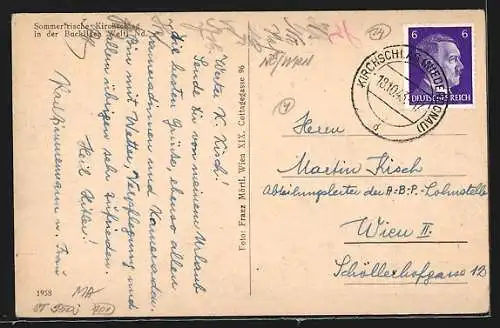 Sommerfrische Kirchschlag
in der Buckligen Welt, Nd.
Werter K. Kisch!
Sende Dir von meinem Urlaub
die besten Grüsse, ebenso allen
Kameradinnen und Kameraden.
Bin mit Wetter, Verpflegung und
allem übrigen sehr zufrieden.
Heil Hitler!
u. Frau
1958
Foto: Franz Mörtl, Wien XIX, Cottagegasse 96
6 6
DEUTSCHES REICH
KIRCHSCHLAG
18.10.43
d
Herrn
Martin Kisch
Abteilungsleiter der A.B.P.-Lohnstelle
Wien II.
Schöllerhofgasse 12